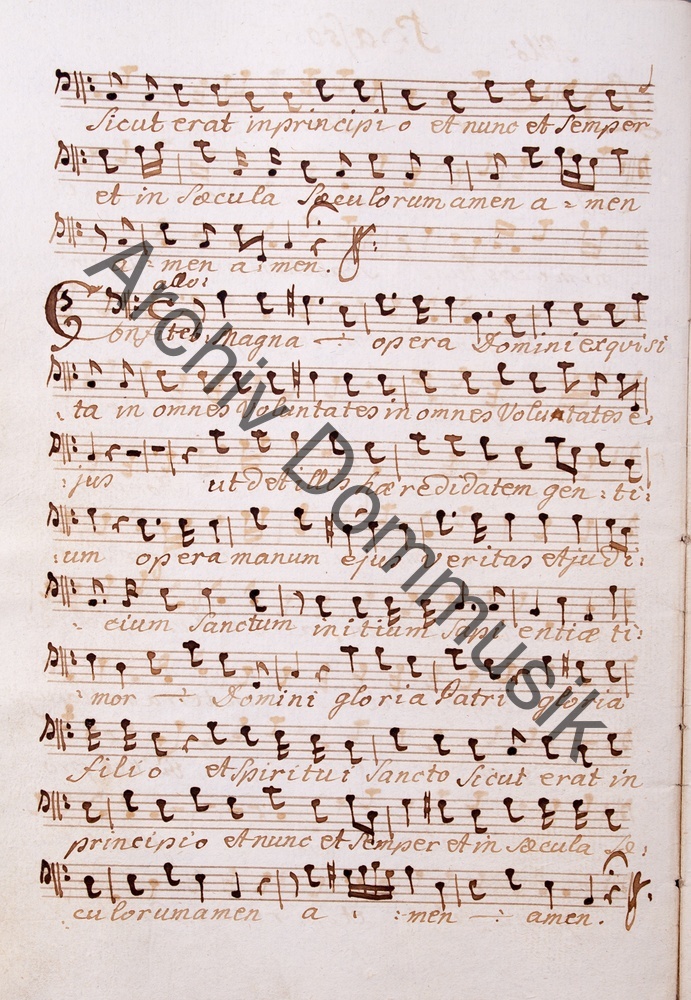 Sicut erat in principi o et nunc et Semper
et in Sæcula Sæculorum amen a = men
a = men a : men.
allo:
Confiteb: magna opera Domini exquisi
: ta in omnes Voluntates in omnes Voluntates e:
: jus ut det illis hæredidatem gen : ti:
: um opera manum ejus veritas et judi:
: cium Sanctum initium Sapi entiæ ti:
: mor Domini gloria Patri gloria
filio et Spiritui Sancto Sicut erat in
principio et nunc et Semper et in Sæcula Sæ:
culorum amen a : : men amen.
Archiv Dommusik